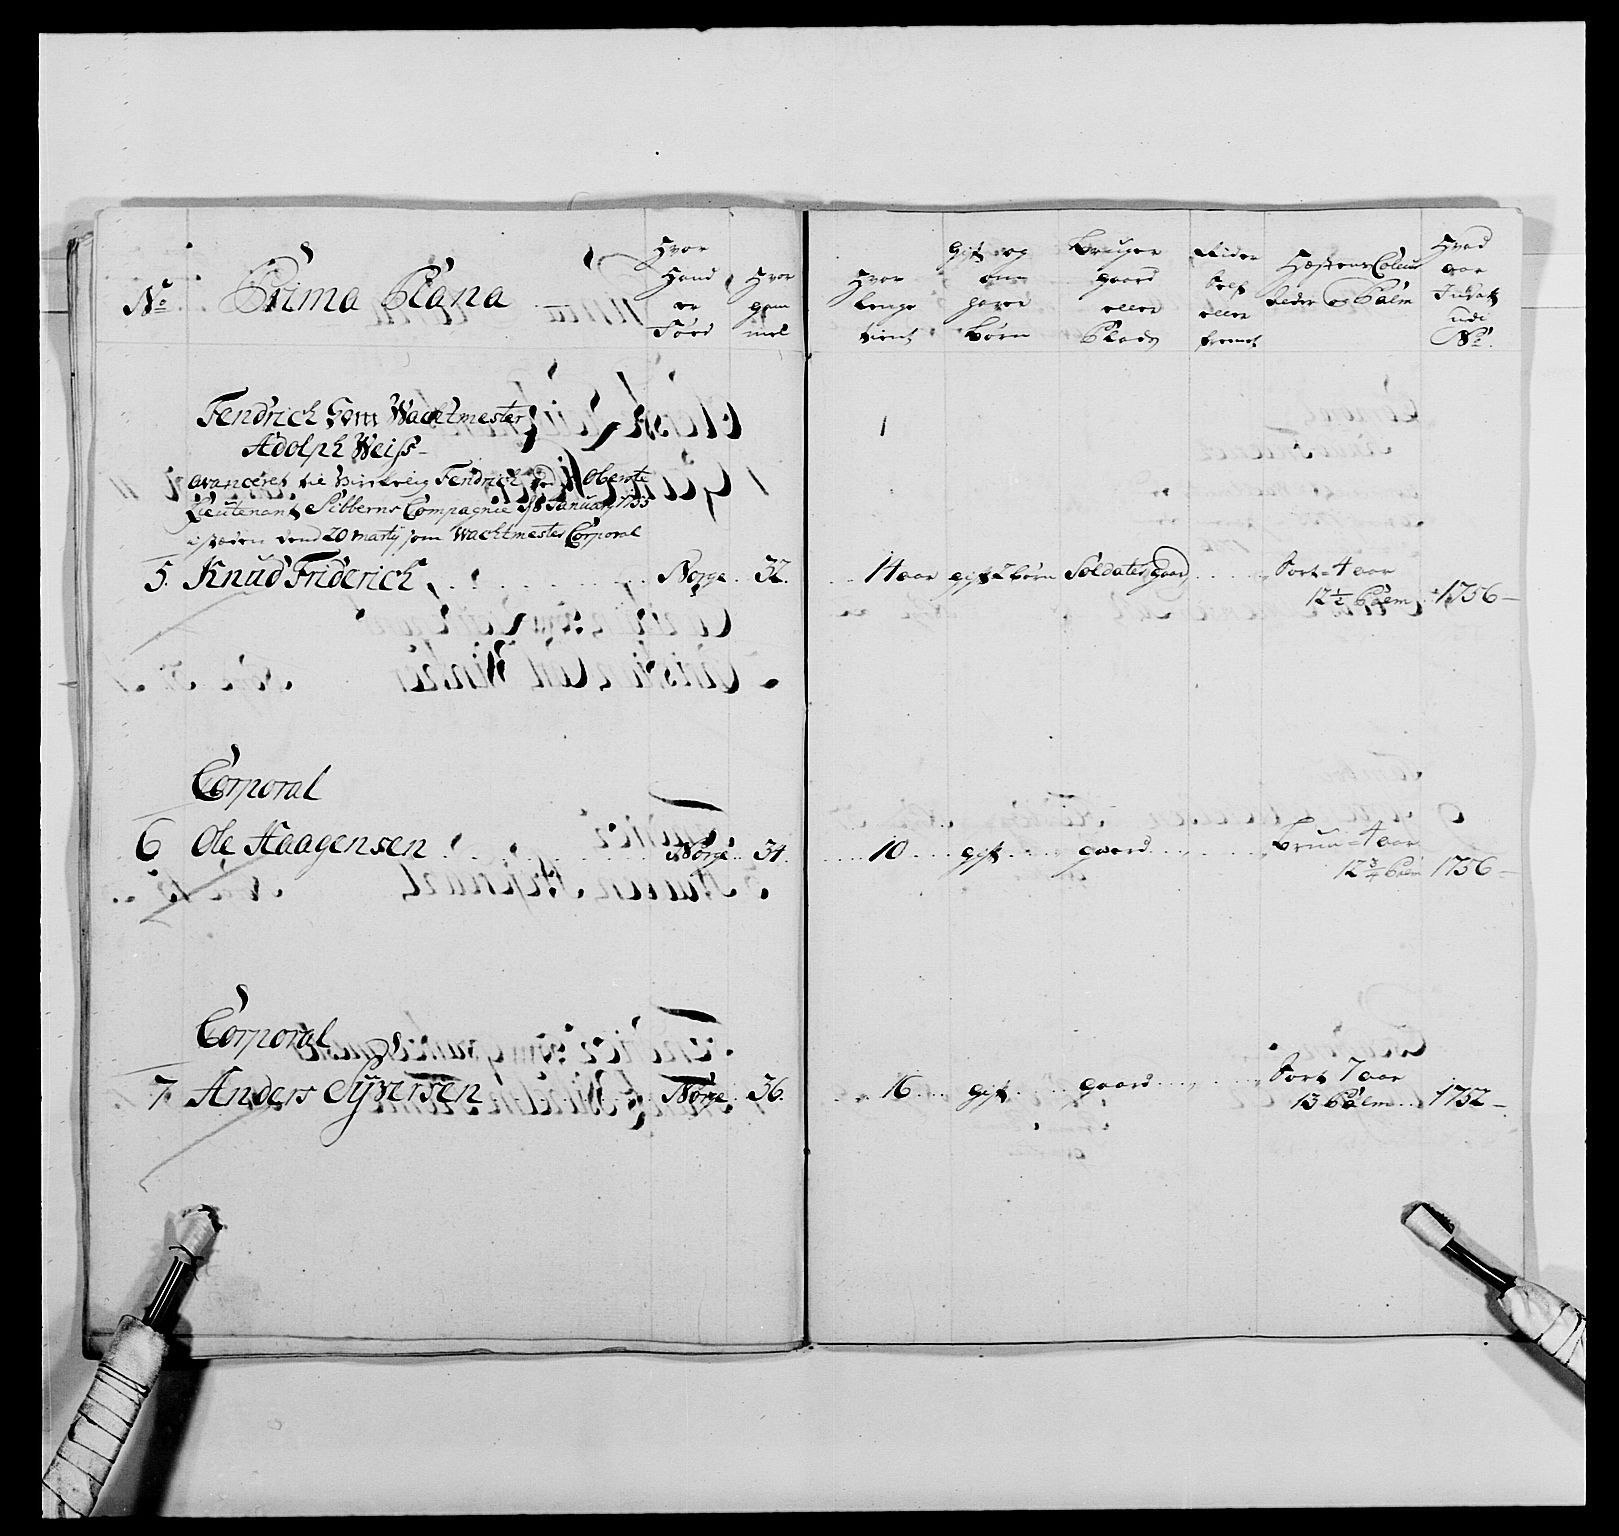 No. Prima Plana
Hvor Hand er Föed
Hvor gam mel
Hvor lenge tient
Gift og om haver börn
Bruger gaard eller Plads
Rider self eller fremet
Hestens Coleur alder og Palm
Hvad aar Indsatt udi No.
Fendrich som Wachtmester
Adolph Weiss
avanceret til Fendrich Oberste
Lieutenant Sibberns Compagnie d 8 Januarj 1755
isteden dend 20 Martij som Wachtmester Corporal
5. Knud Friderich Norge 32. 14 aar gift 2 börn Soldater gaard Sort 4 aar
12 1/2 Palm 1756
Corporal
6 Ole Haagensen Norge 34. 10 gift gaard Bruun 4 aar
12 3/4 Palm 1756
Corporal
7 Anders Syversen Norge 36. 16 gift gaard Sort 7 aar
13 Palm 1752